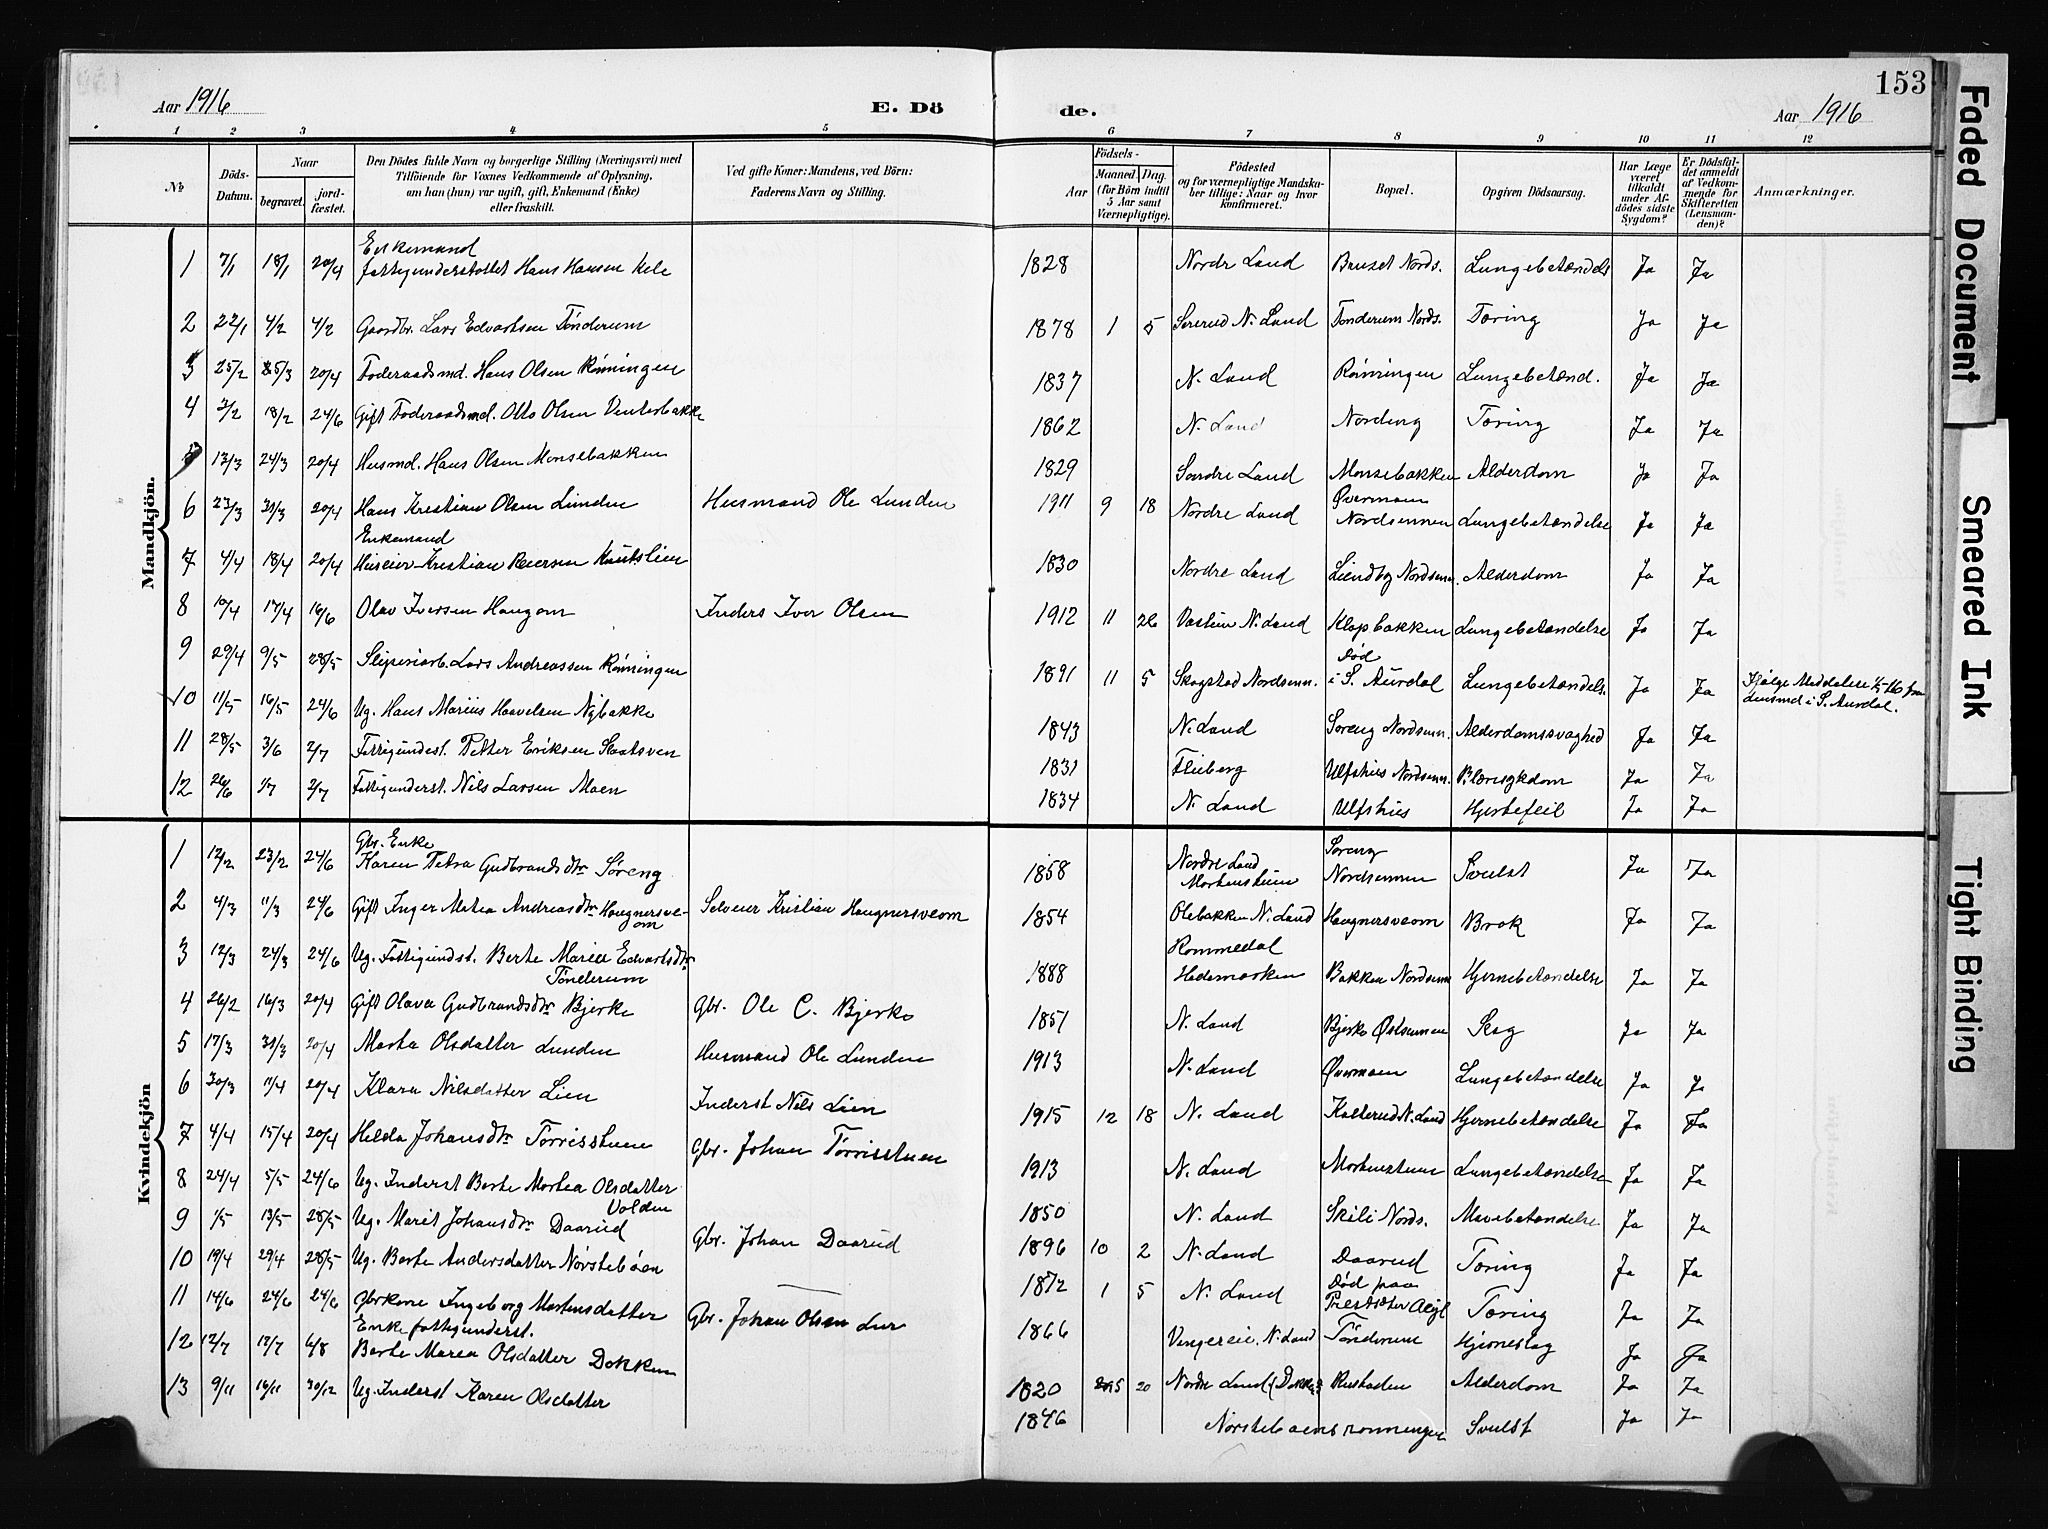 153
Aar 1916
E. Dö
de.
Aar 1916
1 2 3 4 5 6 7 8 9 10 11 12
No
Döds-
Datum.
Naar
begravet.
jord-
fæstet.
Den Dödes fulde Navn og borgerlige Stilling (Næringsvei) med
Tilföiende for Voxnes Vedkommende af Oplysning,
om han (hun) var ugift, gift, Enkemand (Enke)
eller fraskilt.
Ved gifte Koner: Mandens, ved Börn:
Faderens Navn og Stilling.
Födsels-
Aar
Maaned.
Dag.
(for Börn indtil
5 Aar samt
Værnepligtige).
Födested
og for værnepligtige Mandska-
ber tillige: Naar og hvor
konfirmeret.
Bopæl.
Opgiven Dödsaarsag.
Har Læge
været
tilkaldt
under Af-
dödes sidste
Sygdom?
Er Dödsfal-
det anmeldt
af Vedkom-
mende for
Skifteretten
(Lensman-
den)?
Anmærkninger.
Mandkjön.
Enkemand
1 7/1 18/1 20/4 fattigunderstöttet Hans Hansen Kele 1828 Nordre Land Bruset Nords. Lungebetændels Ja Ja
2 22/1 4/2 4/2 Gaardbr. Lars Edvartsen Tönderum 1878 1 5 Sererud N. Land Tonderum Nords. Tæring Ja Ja
3 25/2 25/3 20/4 Föderaadsmd. Hans Olsen Rönningen 1837 N. Land Rönningen Lungebetænd. Ja Ja
4 3/2 18/2 24/6 Gift Föderaadsmd. Otto Olsen Venterbakke 1862 N. Land Nordeng Tæring Ja Ja
5 13/3 24/3 20/4 Husmd. Hans Olsen Monsebakken 1829 Søndre Land Monsebakken Alderdom Ja Ja
6 23/3 31/3 20/4 Hans Kristian Olsen Lunden Husmand Ole Lunden 1911 9 18 Nordre Land Øvermoen Nordsennen Lungebetændelse Ja Ja
Enkemand
7 4/4 18/4 20/4 Huseier Kristian Reiersen Knutslien 1830 Nordre Land Liendby Nordsenn. Alderdom Ja Ja
8 10/4 17/4 16/6 Olav Iversen Haugom Inders Iver Olsen 1912 11 26 Vastuen N. Land Klopbakken Lungebetændelse Ja Ja
9 29/4 9/5 28/5 Sliperiarb. Lars Andreassen Rönningen 1891 11 5 Skogstad Nordsenn. Død i S. Aurdal Lungebetændels. Ja Ja Ifølge Meddelelse fra Lensmd i S. Aurdal.
10 11/5 16/5 24/6 Ug. Hans Marius Haavelsen Nybakke 1843 N. Land Soreng Nordsenn. Alderdomssvaghed Ja Ja
11 28/5 3/6 2/7 Fattigundest. Petter Eriksen Slaatsven 1831 Flieberg Ulfshus Nordsenn. Blæresykdom Ja Ja
12 26/6 1/7 2/7 Fattigunderst. Nils Larsen Moen 1834 N. Land Ulfshus Hjertefeil Ja Ja
Kvindekjön
Gbr. Enke
1 12/2 23/2 24/6 Karen Petra Gudbrandsdtr Söreng 1858 Nordre Land Mortenstuen Soreng Nordsennen Svulst Ja Ja
2 4/3 11/3 24/6 Gift Inger Matea Andreasdtr Haugnersveom Selveier Kristian Haugnersveom 1854 Olebakken N. Land Haugnersveom Brok Ja Ja
3 12/3 24/3 24/6 Ug. Fattigundst. Berte Marie Edvartsdtr Tönderum 1888 Rommedal Hedemarken Bakken Nordsenn Hjernebetændelse Ja Ja
4 26/2 16/3 20/4 Gift Olava Gudbrandsdtr Bjerke Gbr. Ole C. Bjerke 1851 N. Land Bjerke Østsennen Slag Ja Ja
5 17/3 31/3 20/4 Marta Olsdatter Lunden Husmand Ole Lunden 1913 N. Land Øvermoen Lungebetændelse Ja Ja
6 30/3 11/4 20/4 Klara Nilsdatter Lien Inderst Nils Lien 1915 12 18 N. Land Kalterud N. Land Hjernebetændelse Ja Ja
7 4/4 15/4 20/4 Helda Johansdtr Törrisstuen Gbr. Johan Törrisstuen 1913 N. Land Mortenstuen Lungebetændelse Ja Ja
8 24/4 5/5 24/6 Ug. Inderst Berte Mortea Olsdatter Volden 1850 N. Land Skili Nords. Mavebetændelse Ja Ja
9 1/5 13/5 28/5 Ug. Marit Johansdtr Daarud Gbr. Johan Daarud 1896 10 2 N. Land Daarud Tæring Ja Ja
10 19/4 29/4 28/5 Ug. Berte Andersdatter Nörstebøen 1872 1 5 N. Land Död paa Prestsæter Tæring Ja Ja
11 14/6 24/6 24/6 Gbrkone Ingeborg Mortensdatter Gbr. Johan Olsen Lur 1866 Vengereie. N. Land Tönderum Hjerneslag Ja Ja
Enke fattigunderst.
12 12/7 17/7 6/8 Berte Marea Olsdatter Dokken 1820 5 20 Nordre Land (Dokken) Rustaden Alderdom Ja Ja
13 9/11 16/11 30/12 Ug. Inderst Karen Olsdatter 1846 Norstebøensronningen Svulst Ja Ja
Faded Document
Smeared Ink
Tight Binding